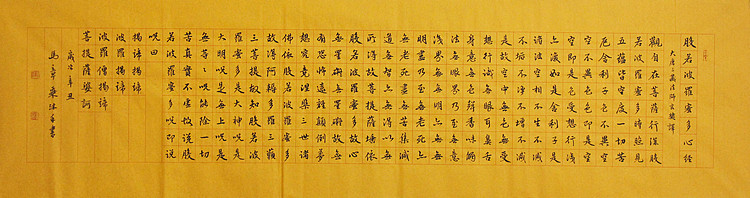 般若波羅蜜多心經
大唐三藏法師玄奘譯
觀自在菩薩行深般
若波羅蜜多時照見
五蘊皆空度一切苦
厄舍利子色不異空
空不異色色即是空
空即是色受想行識
亦復如是舍利子是
諸法空相不生不滅
不垢不淨不增不減
是故空中無色無受
想行識無眼耳鼻舌
身意無色聲香味觸
法無眼界乃至無意
識界無無明亦無無
明盡乃至無老死亦
無老死盡無苦集滅
道無智亦無得以無
所得故菩提薩埵依
般若波羅蜜多故心
無罣礙無罣礙故無
有恐怖遠離顛倒夢
想究竟涅槃三世諸
佛依般若波羅蜜多
故得阿耨多羅三藐
三菩提故知般若波
羅蜜多是大神呪是
大明呪是無上呪是
無等々呪能除一切
苦真實不虛故說般
若波羅蜜多呪即說
呪曰
揭諦揭諦
波羅揭諦
波羅僧揭諦
菩提薩婆訶
歲在辛丑
書